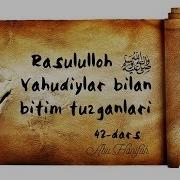 Rasululloh ﷺ
Yahudiylar bilan
bitim tuzganlari
42-dars
Abu Hanifah